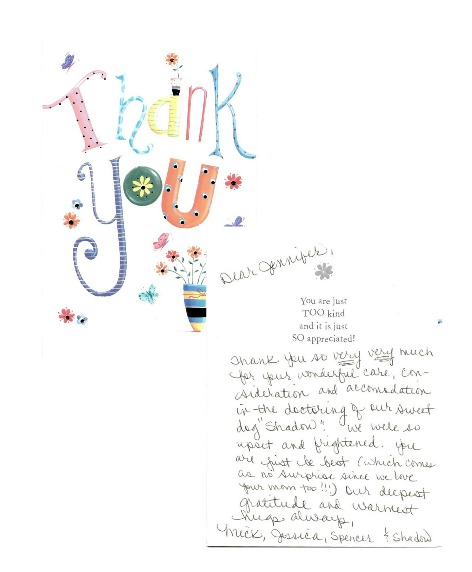 Thank
you
Dear Jennifer,
You are just
TOO kind
and it is just
SO appreciated!
Thank you so very very much
for your wonderful care, con-
sideration and accomodation
in the doctoring of our sweet
dog "Shadow". We were so
upset and frightened. You
are just be best (which comes
as no surprise since we love
your mom too!!!) Our deepest
gratitude and warmest
hugs always,
Mick, Jessica, Spencer & Shadow